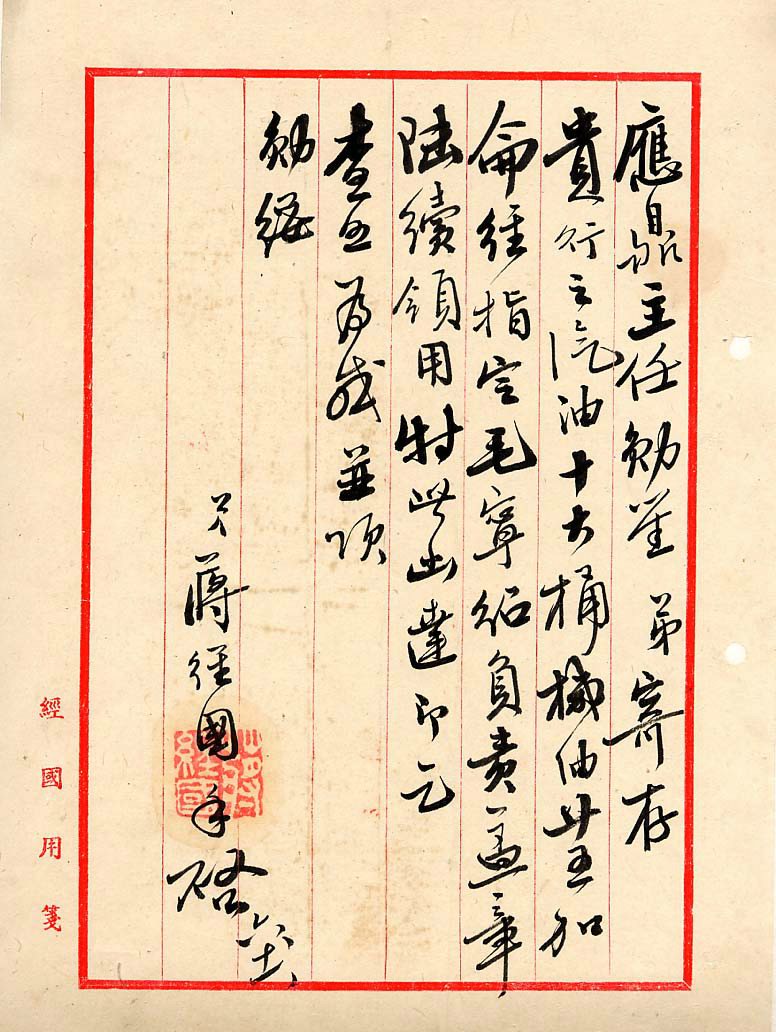 應鼎主任勛鑒 弟寄存
貴行之汽油十大桶機油廿五加
侖經指定毛寧紹負責蓋章
陸續領用特此函達即乞
查照為感並頌
勛綏
弟蔣經國手啓 六士
蔣經國
經國用箋